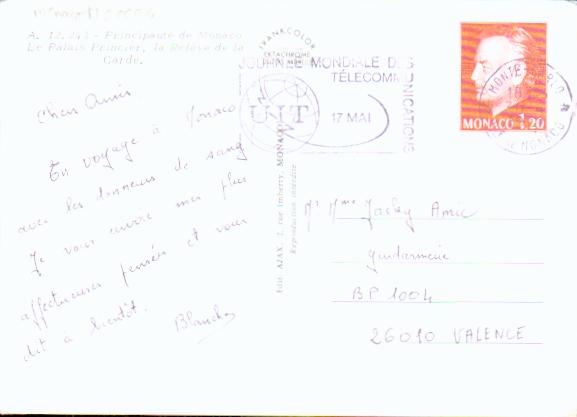 A. 12.241 - Principauté de Monaco
Le Palais Princier, la Relève de la
Garde.
Chers Amis
En voyage à Monaco
avec les donneurs de sang
Je vous envoie mes plus
affectueuses pensées et vous
dit à bientôt.
Blanche
FRANKCOLOR
EKTACHROME
Edit. AJAX, 2, rue Imberty, MONACO
Reproduction interdite
JOURNÉE MONDIALE DES
TÉLÉCOMMUNICATIONS
UIT
17 MAI
MONACO 1,20
MONTE-CARLO
MONACO
Mr Mme Jacky Amic
Gendarmerie
BP 1004
26010 VALENCE